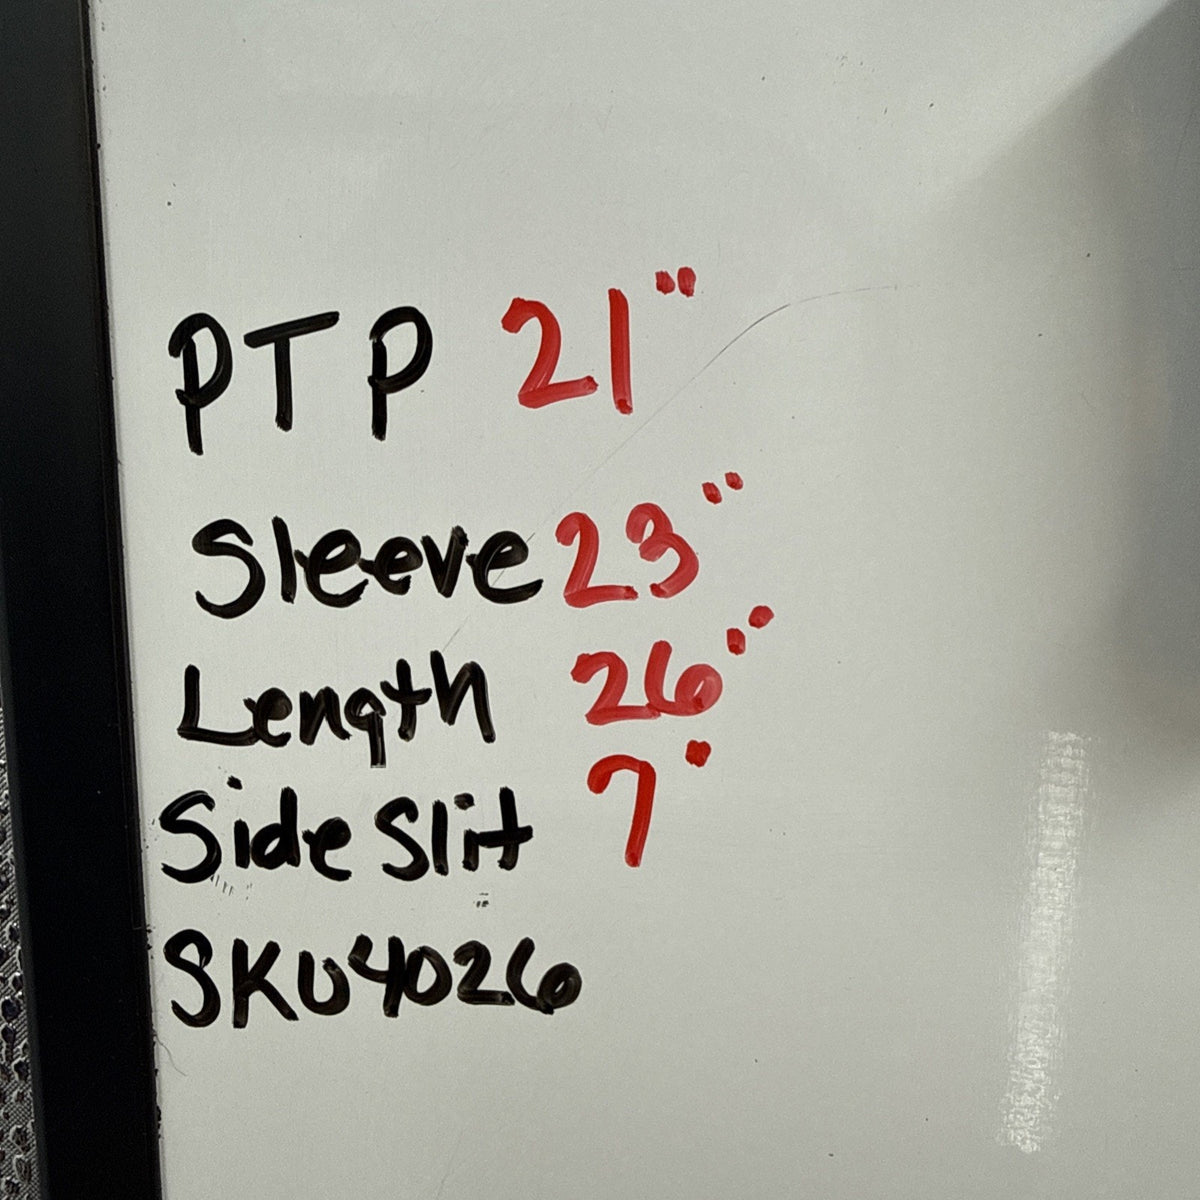 PTP 21"
Sleeve 23"
Length 26"
Side Slit 7"
SKU4026